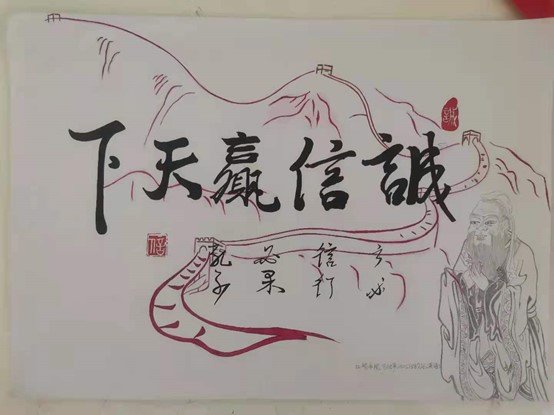 誠信赢天下
誠
信
言必
信行
必果
孔子